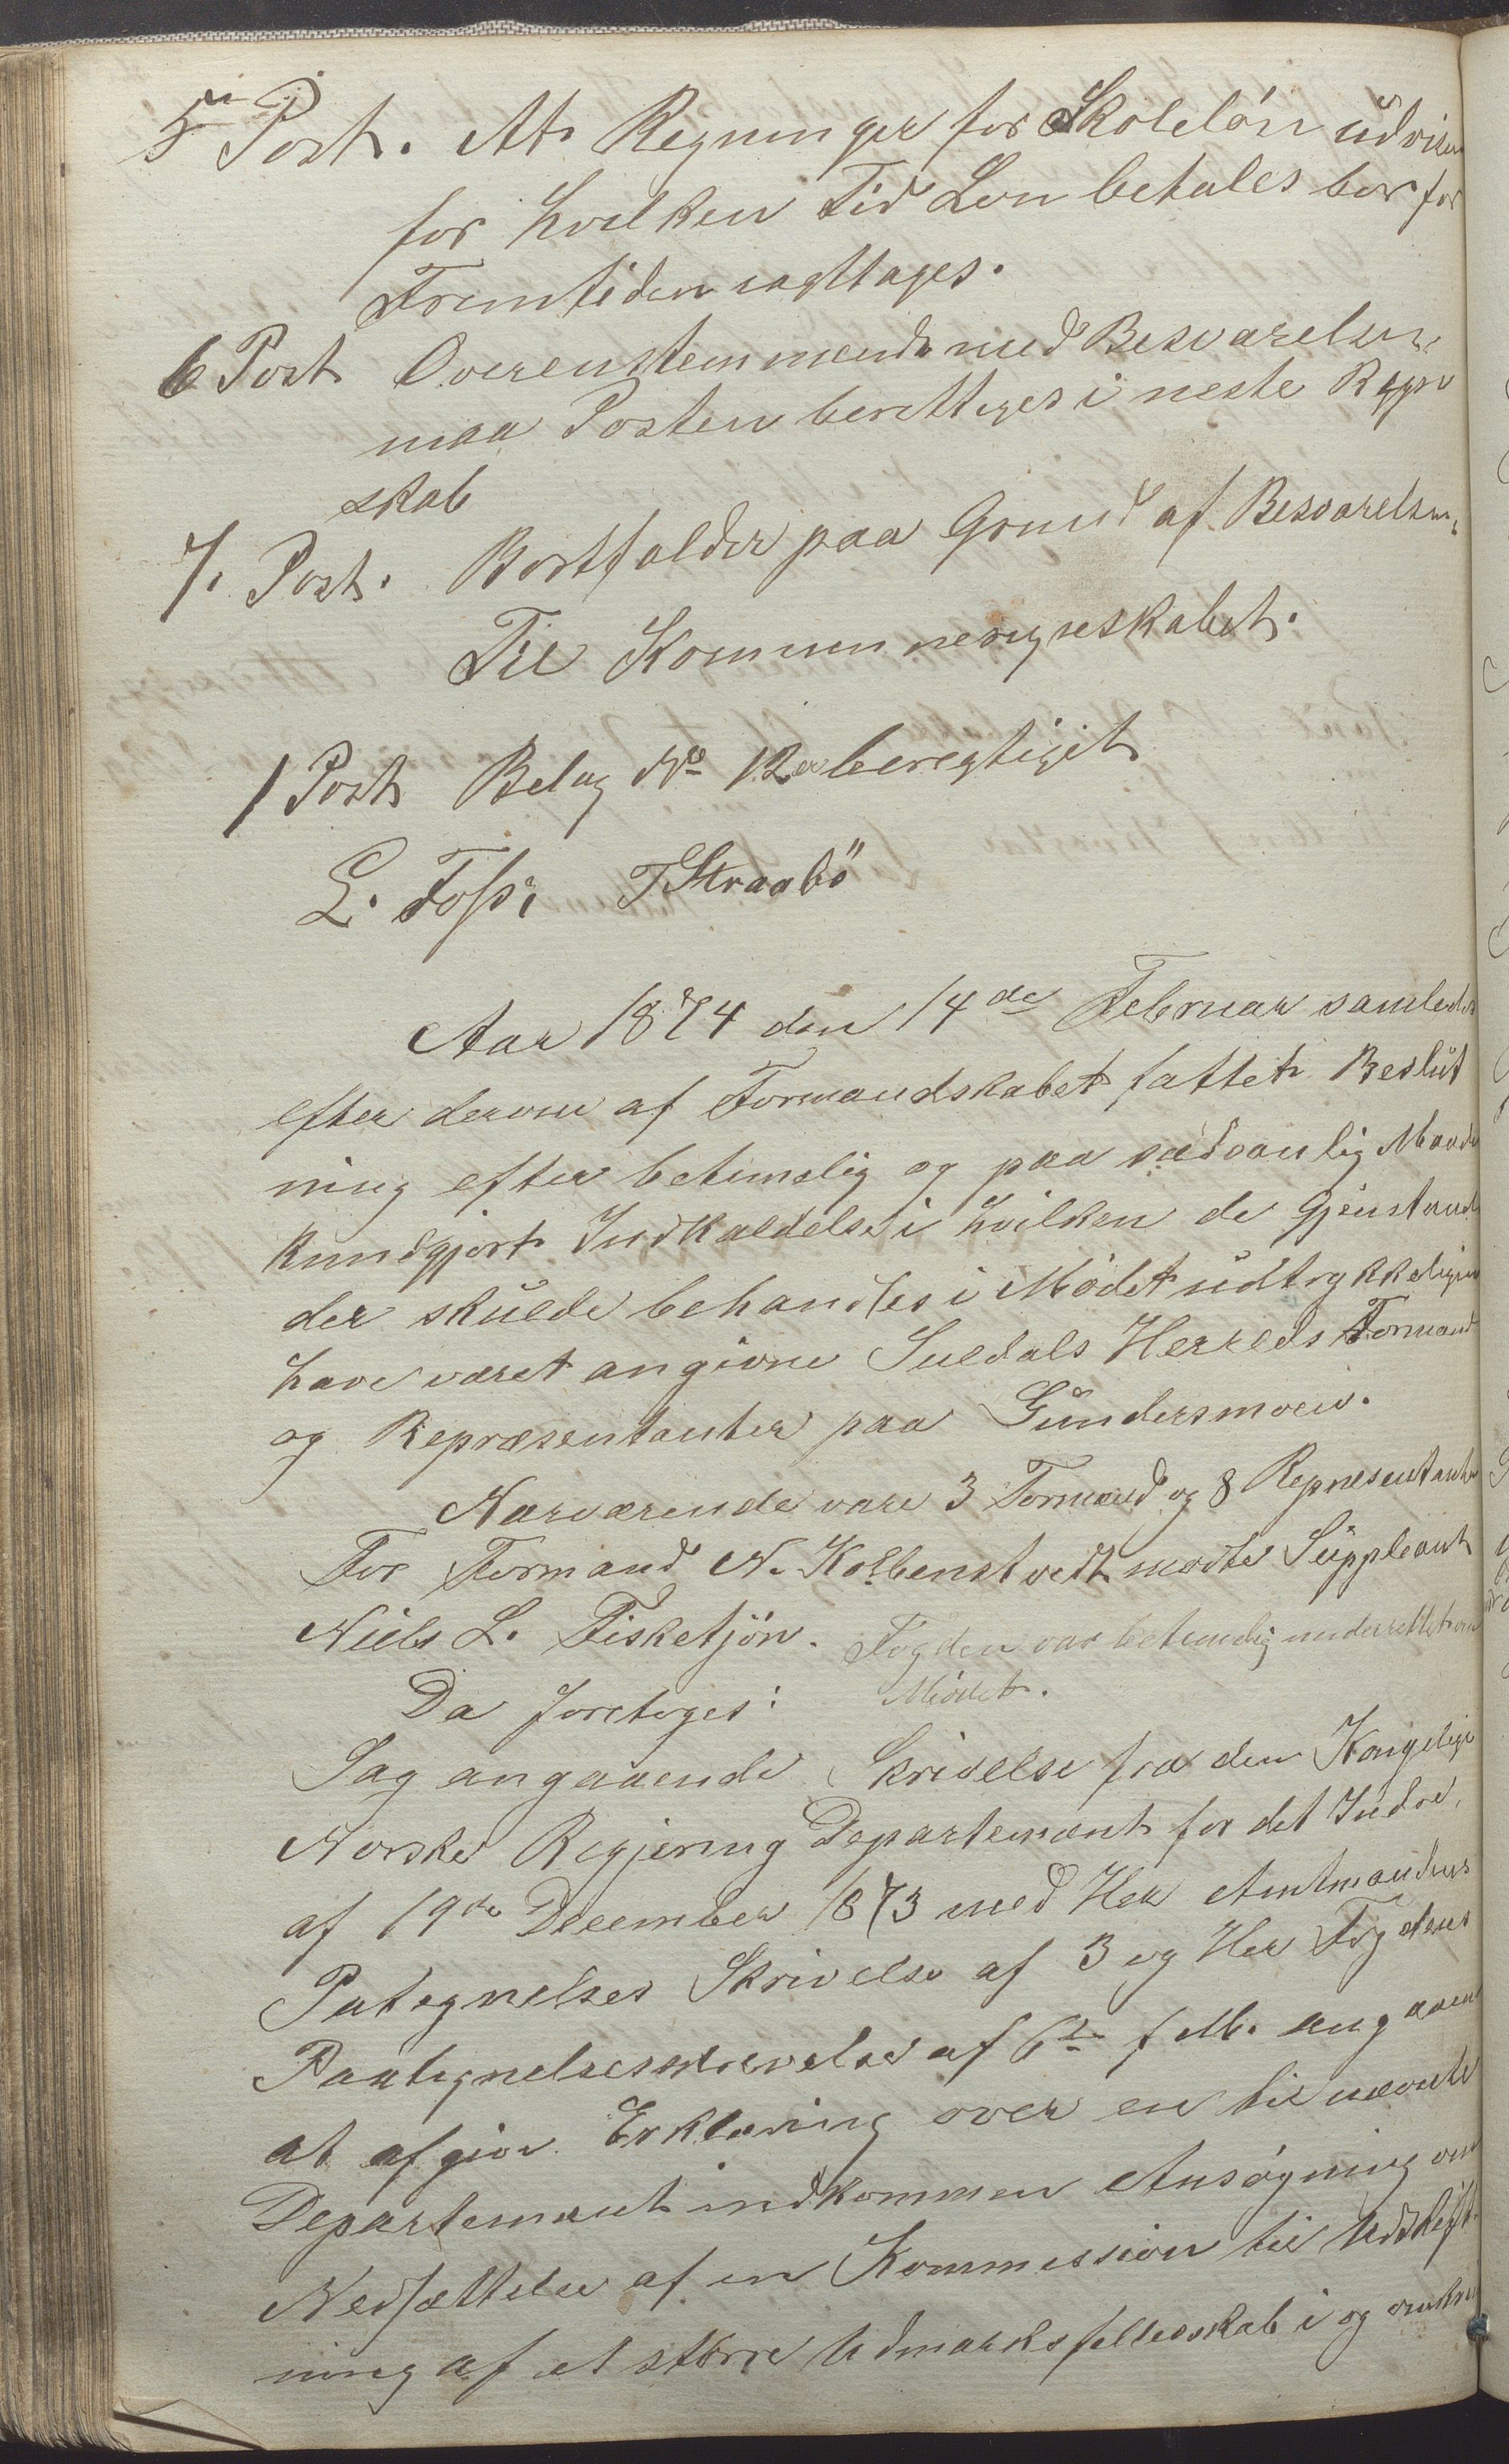 5 Post. At Regninger for Skoleløn udviser
for hvilken Tid Løn betales bør for
Fremtiden iagttages.
6 Post Overenstemmende med Besvarelsen
maa Posten berettiges i neste Regn
skab
7. Post. Bortfalder paa Grund af Besvarelsen.
Til Kommuneregneskabet.
1 Post Belag No 12 er beregtiget
L. Foss. T Straabö
Aar 1874 den 14de Februar samledes
efter derom af Formandskabet fattet Beslut
ning efter betimelig og paa sædvanlig Maade
kundgjort Indkaldelse i hvilken de Gjenstande
der skulde behandles i Mødet udtrykkeligen
have været angivne Suldals Herreds Formænd
og Repræsentanter paa Gundersmoen.
Nærværende vare 3 Formænd og 8 Repræsentanter
For Formand N. Kolbenstvedt mødte Suppleant
Niels L. Fisketjön. Fogden var betimelig underrettet om
Mödet.
Da foretoges:
Sag angaaende Skrivelse fra den Kongelige
Norske Regjering Departement for det Indre,
af 19de December 1873 med Her Amtmandens
Pategnelses Skrivelse af 3 og Her Fogdens
Paategnelsesskrevelse af 6te f. M. angaaende
at afgive Erklæring over en til nævnte
Departement indkommen Ansøgning om
Nedsættelse af en Kommission til Udskift
ning af et større Udmarksfellesskab i og omkring